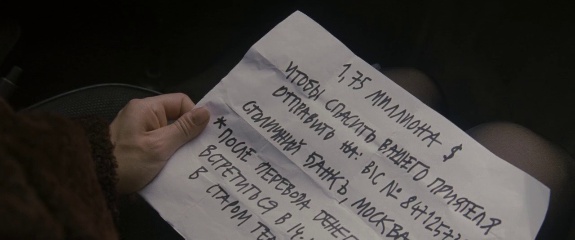 1,75 МИЛЛИОНА $
ЧТОБЫ СПАСИТЬ ВАШЕГО ПРИЯТЕЛЯ
ОТПРАВИТЬ НА: BIC №
СТОЛИЧНЫЙ БАНКЪ, МОСКВА
*ПОСЛЕ ПЕРЕВОДА ДЕНЕГ
ВСТРЕТИТЬСЯ В 14.
В СТАРОМ